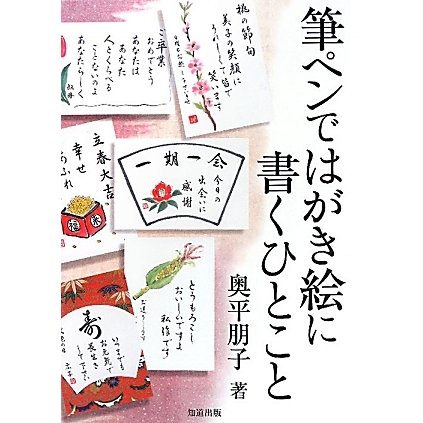 筆ペンではがき絵に
書くひとこと
奥平朋子 著
知道出版
桃の節句
美子の笑顔に
うれしくて皆で
笑います
ご卒業
おめでとう
あなたは
あなた
人とくらべる
ことないのよ
あなたらしく
立春大吉
幸せ
あふれ
福
一期一会
今日の
出会いに
感謝
とうもろこし
おいしいですよ
私作です
寿
いつまでも
お元気で
長生き
して下さい